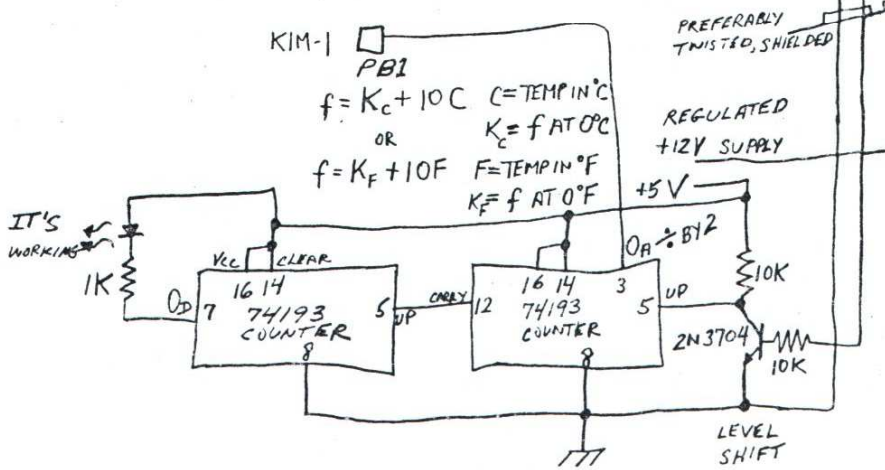 PREFERABLY
TWISTED, SHIELDED
KIM-1
PB1
f = Kc + 10C C = TEMP IN °C
Kc = f AT 0°C
OR
f = KF + 10F F = TEMP IN °F
KF = f AT 0°F
REGULATED
+12V SUPPLY
+5V
IT'S
WORKING
1K
VCC CLEAR
16 14
OD 7
74193
COUNTER
8
5 UP
CARRY
12
16 14
74193
COUNTER
8
3
OA ÷ BY 2
5 UP
10K
2N3704
10K
LEVEL
SHIFT